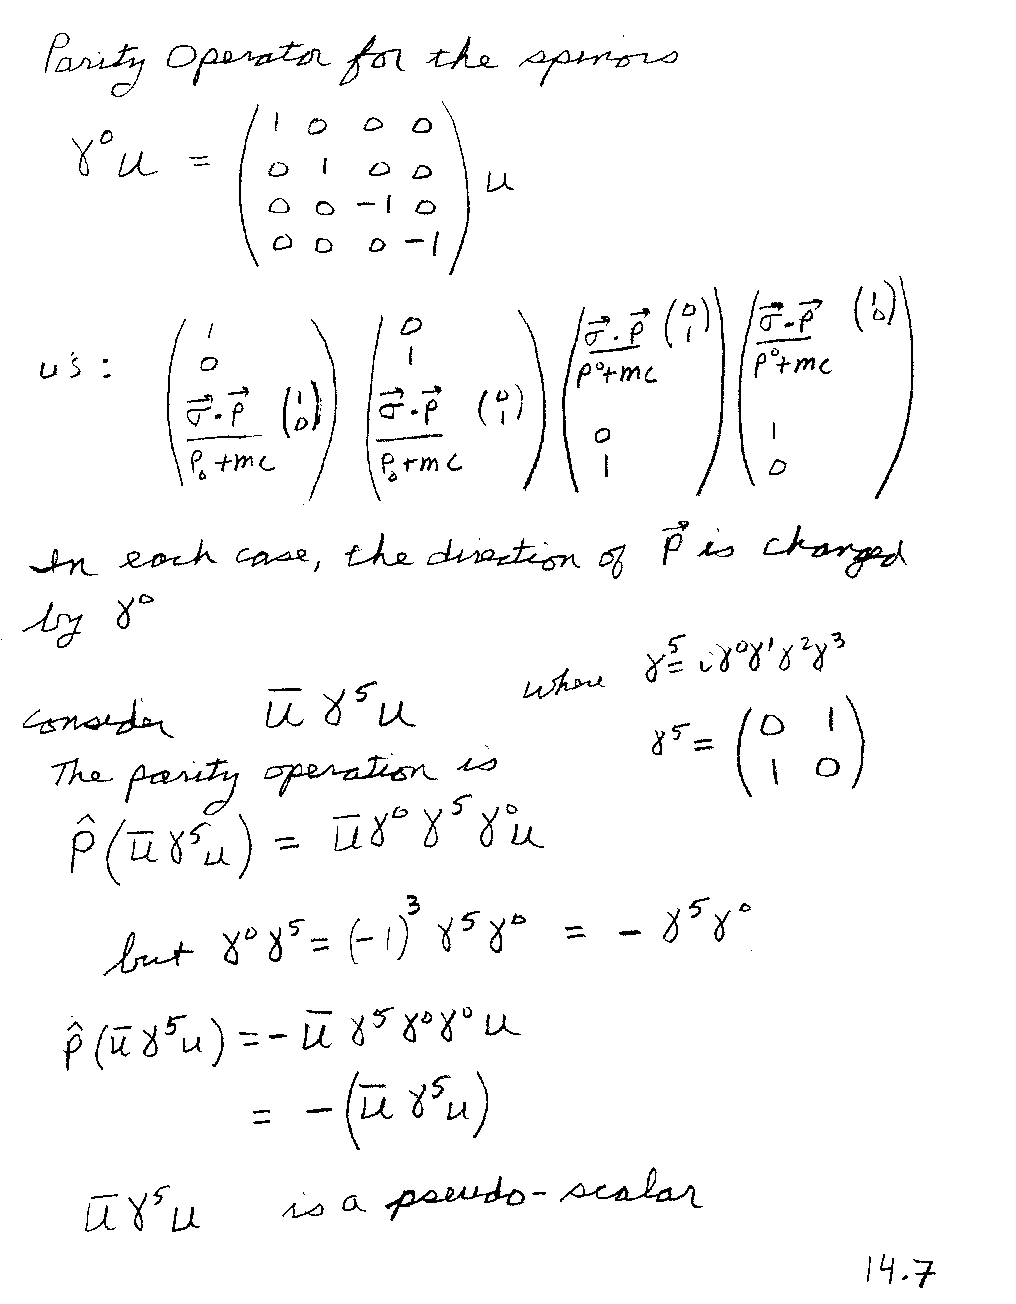 Parity Operator for the spinors
γ⁰u = ( 1 0 0 0 / 0 1 0 0 / 0 0 -1 0 / 0 0 0 -1 ) u
u's : ( 1 / 0 / σ⃗·p⃗/(p₀+mc) (1 0) ) ( 0 / 1 / σ⃗·p⃗/(p₀+mc) (0 1) ) ( σ⃗·p⃗/(p⁰+mc) (0 1) / 0 / 1 ) ( σ⃗·p⃗/(p⁰+mc) (1 0) / 1 / 0 )
In each case, the direction of p⃗ is changed
by γ⁰
consider ūγ⁵u where γ⁵= iγ⁰γ¹γ²γ³
γ⁵ = ( 0 1 / 1 0 )
The parity operation is
P̂(ūγ⁵u) = ūγ⁰γ⁵γ⁰u
but γ⁰γ⁵ = (-1)³ γ⁵γ⁰ = - γ⁵γ⁰
P̂(ūγ⁵u) = - ūγ⁵γ⁰γ⁰u
= - (ūγ⁵u)
ūγ⁵u is a pseudo-scalar
14.7